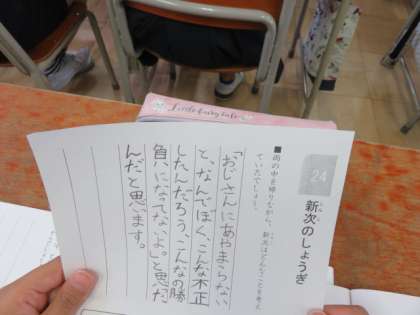 Little fairy tale
24
新次のしょうぎ
■雨の中を帰りながら、新次はどんなことを考え
ていたでしょう。
「おじさんにあやまらない
と、なんでぼく、こんな不正
したんだろう、こんなの勝
負になってないよ。」と思った
んだと思います。